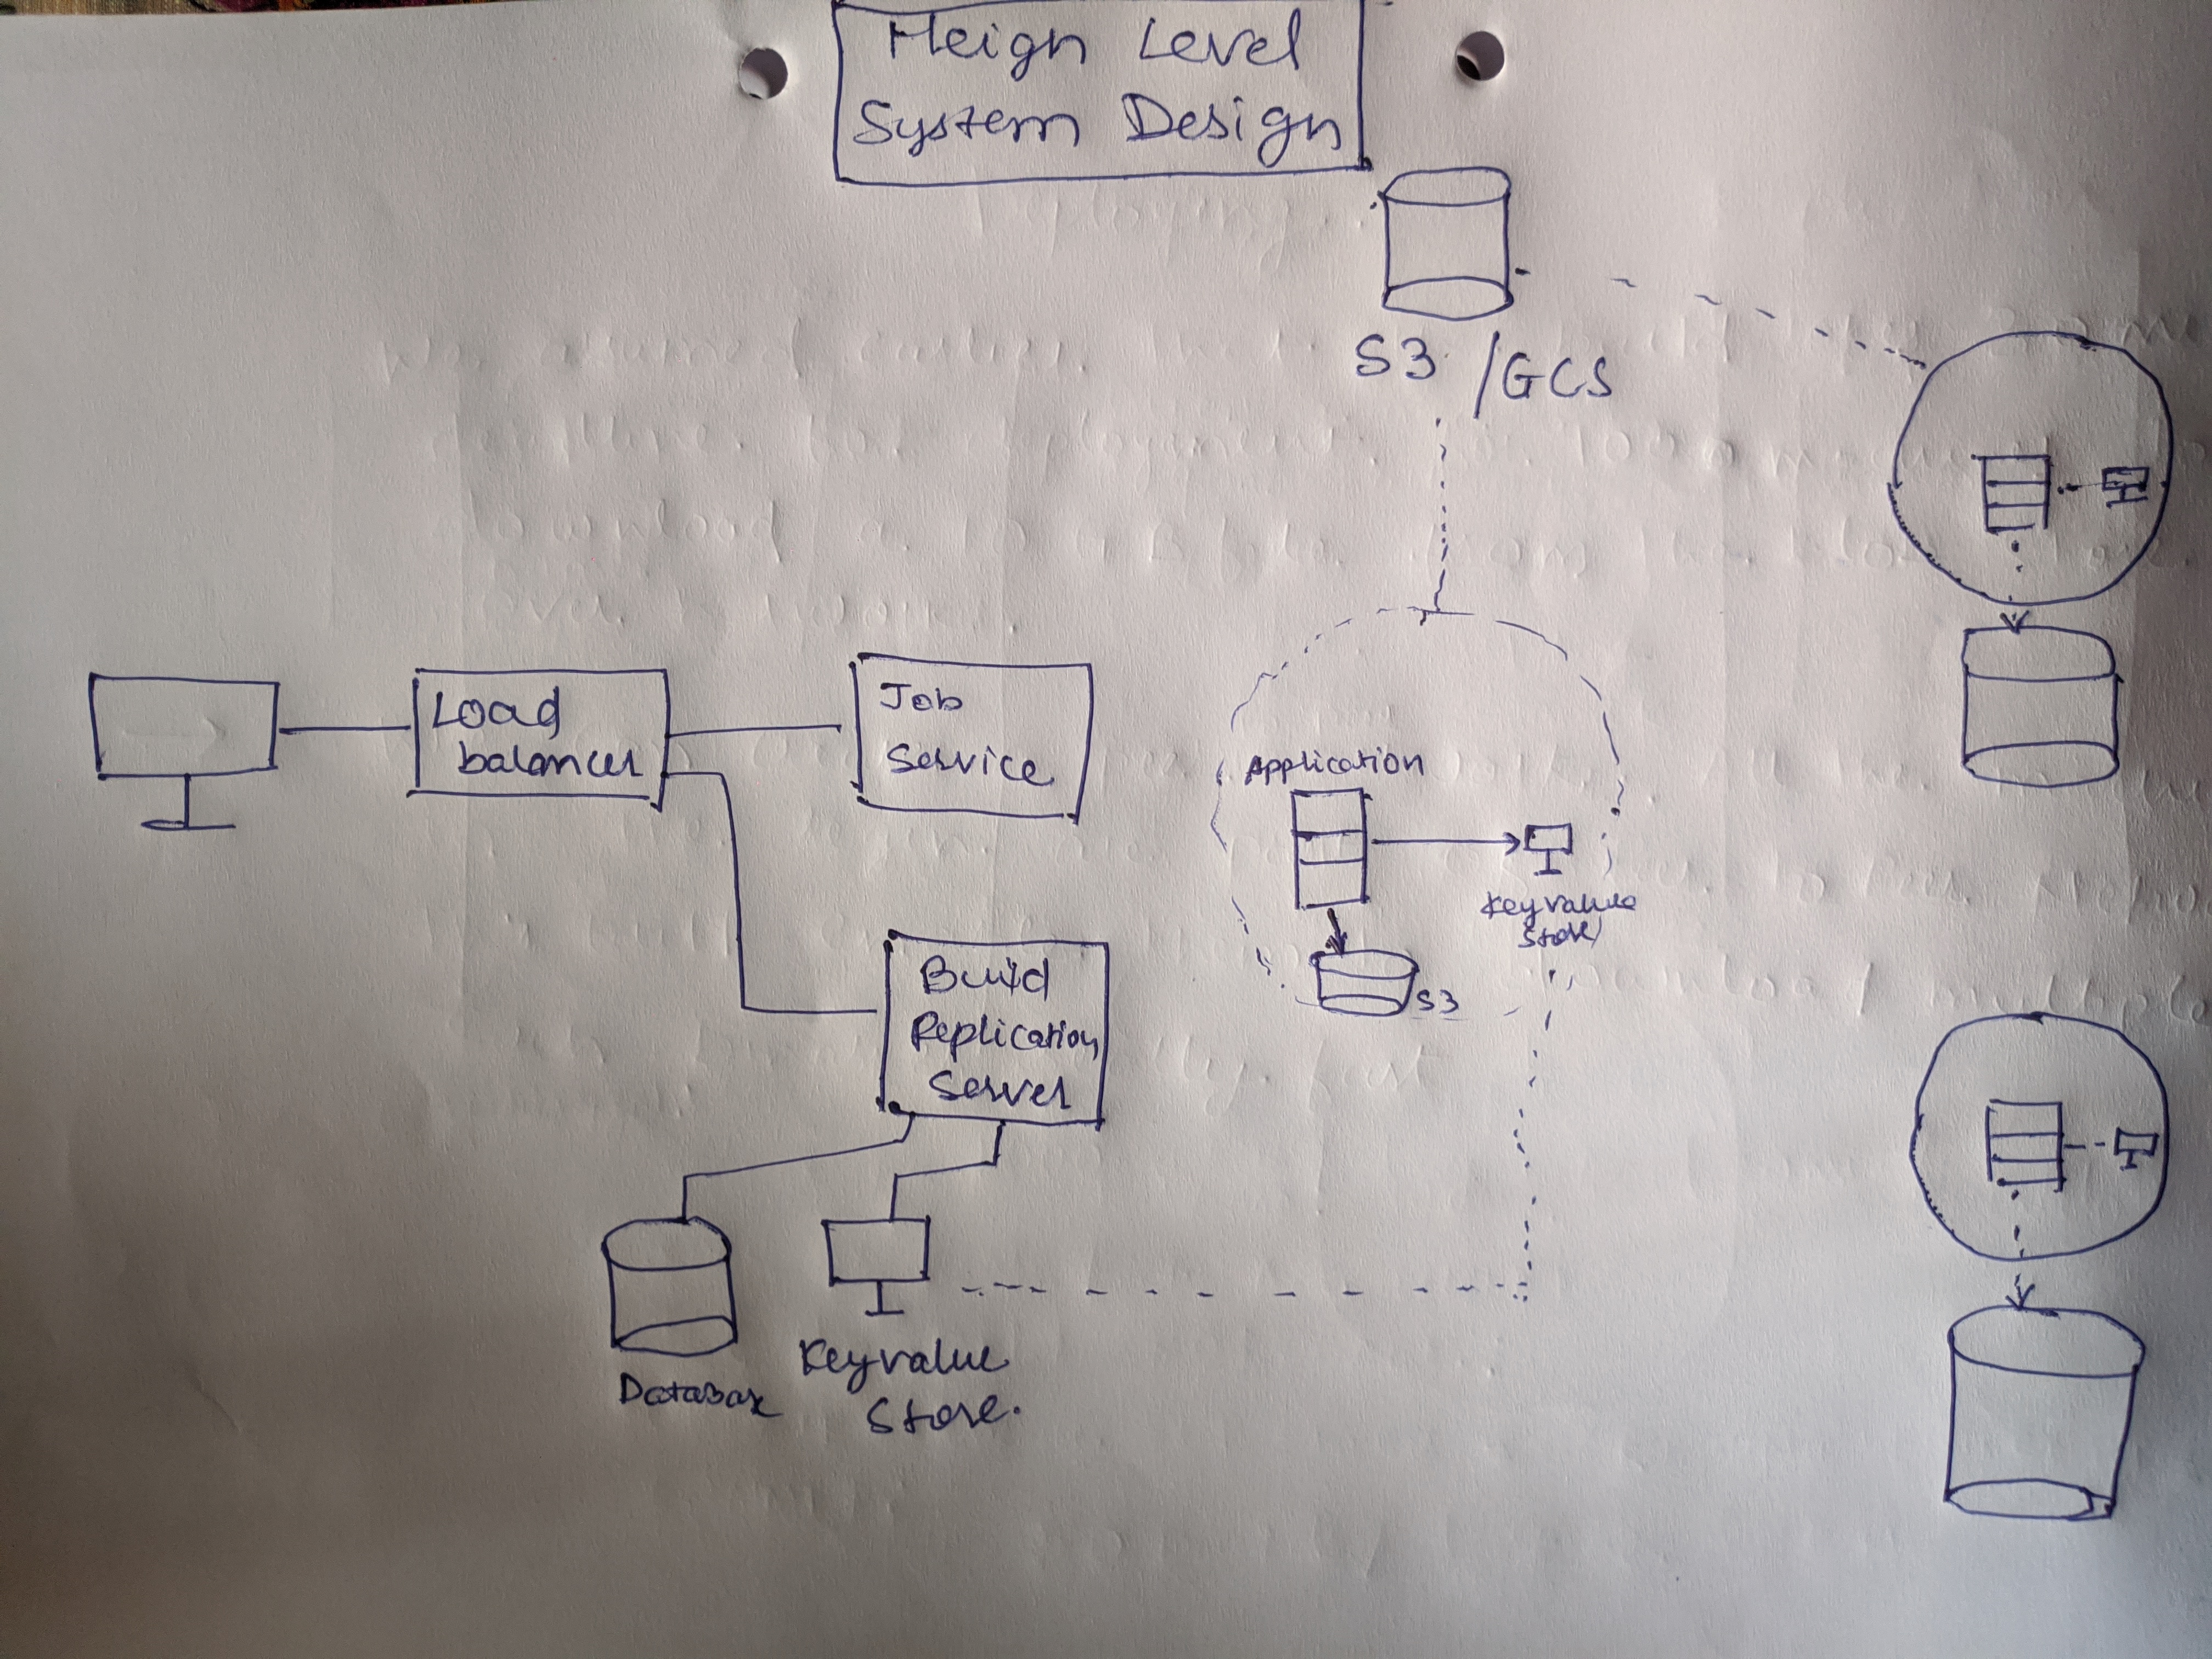 Heign Level
System Design
S3 /GCS
Load
balancer
Job
Service
Build
Replication
Server
Database
Key value
Store.
Application
S3
Key value
Store